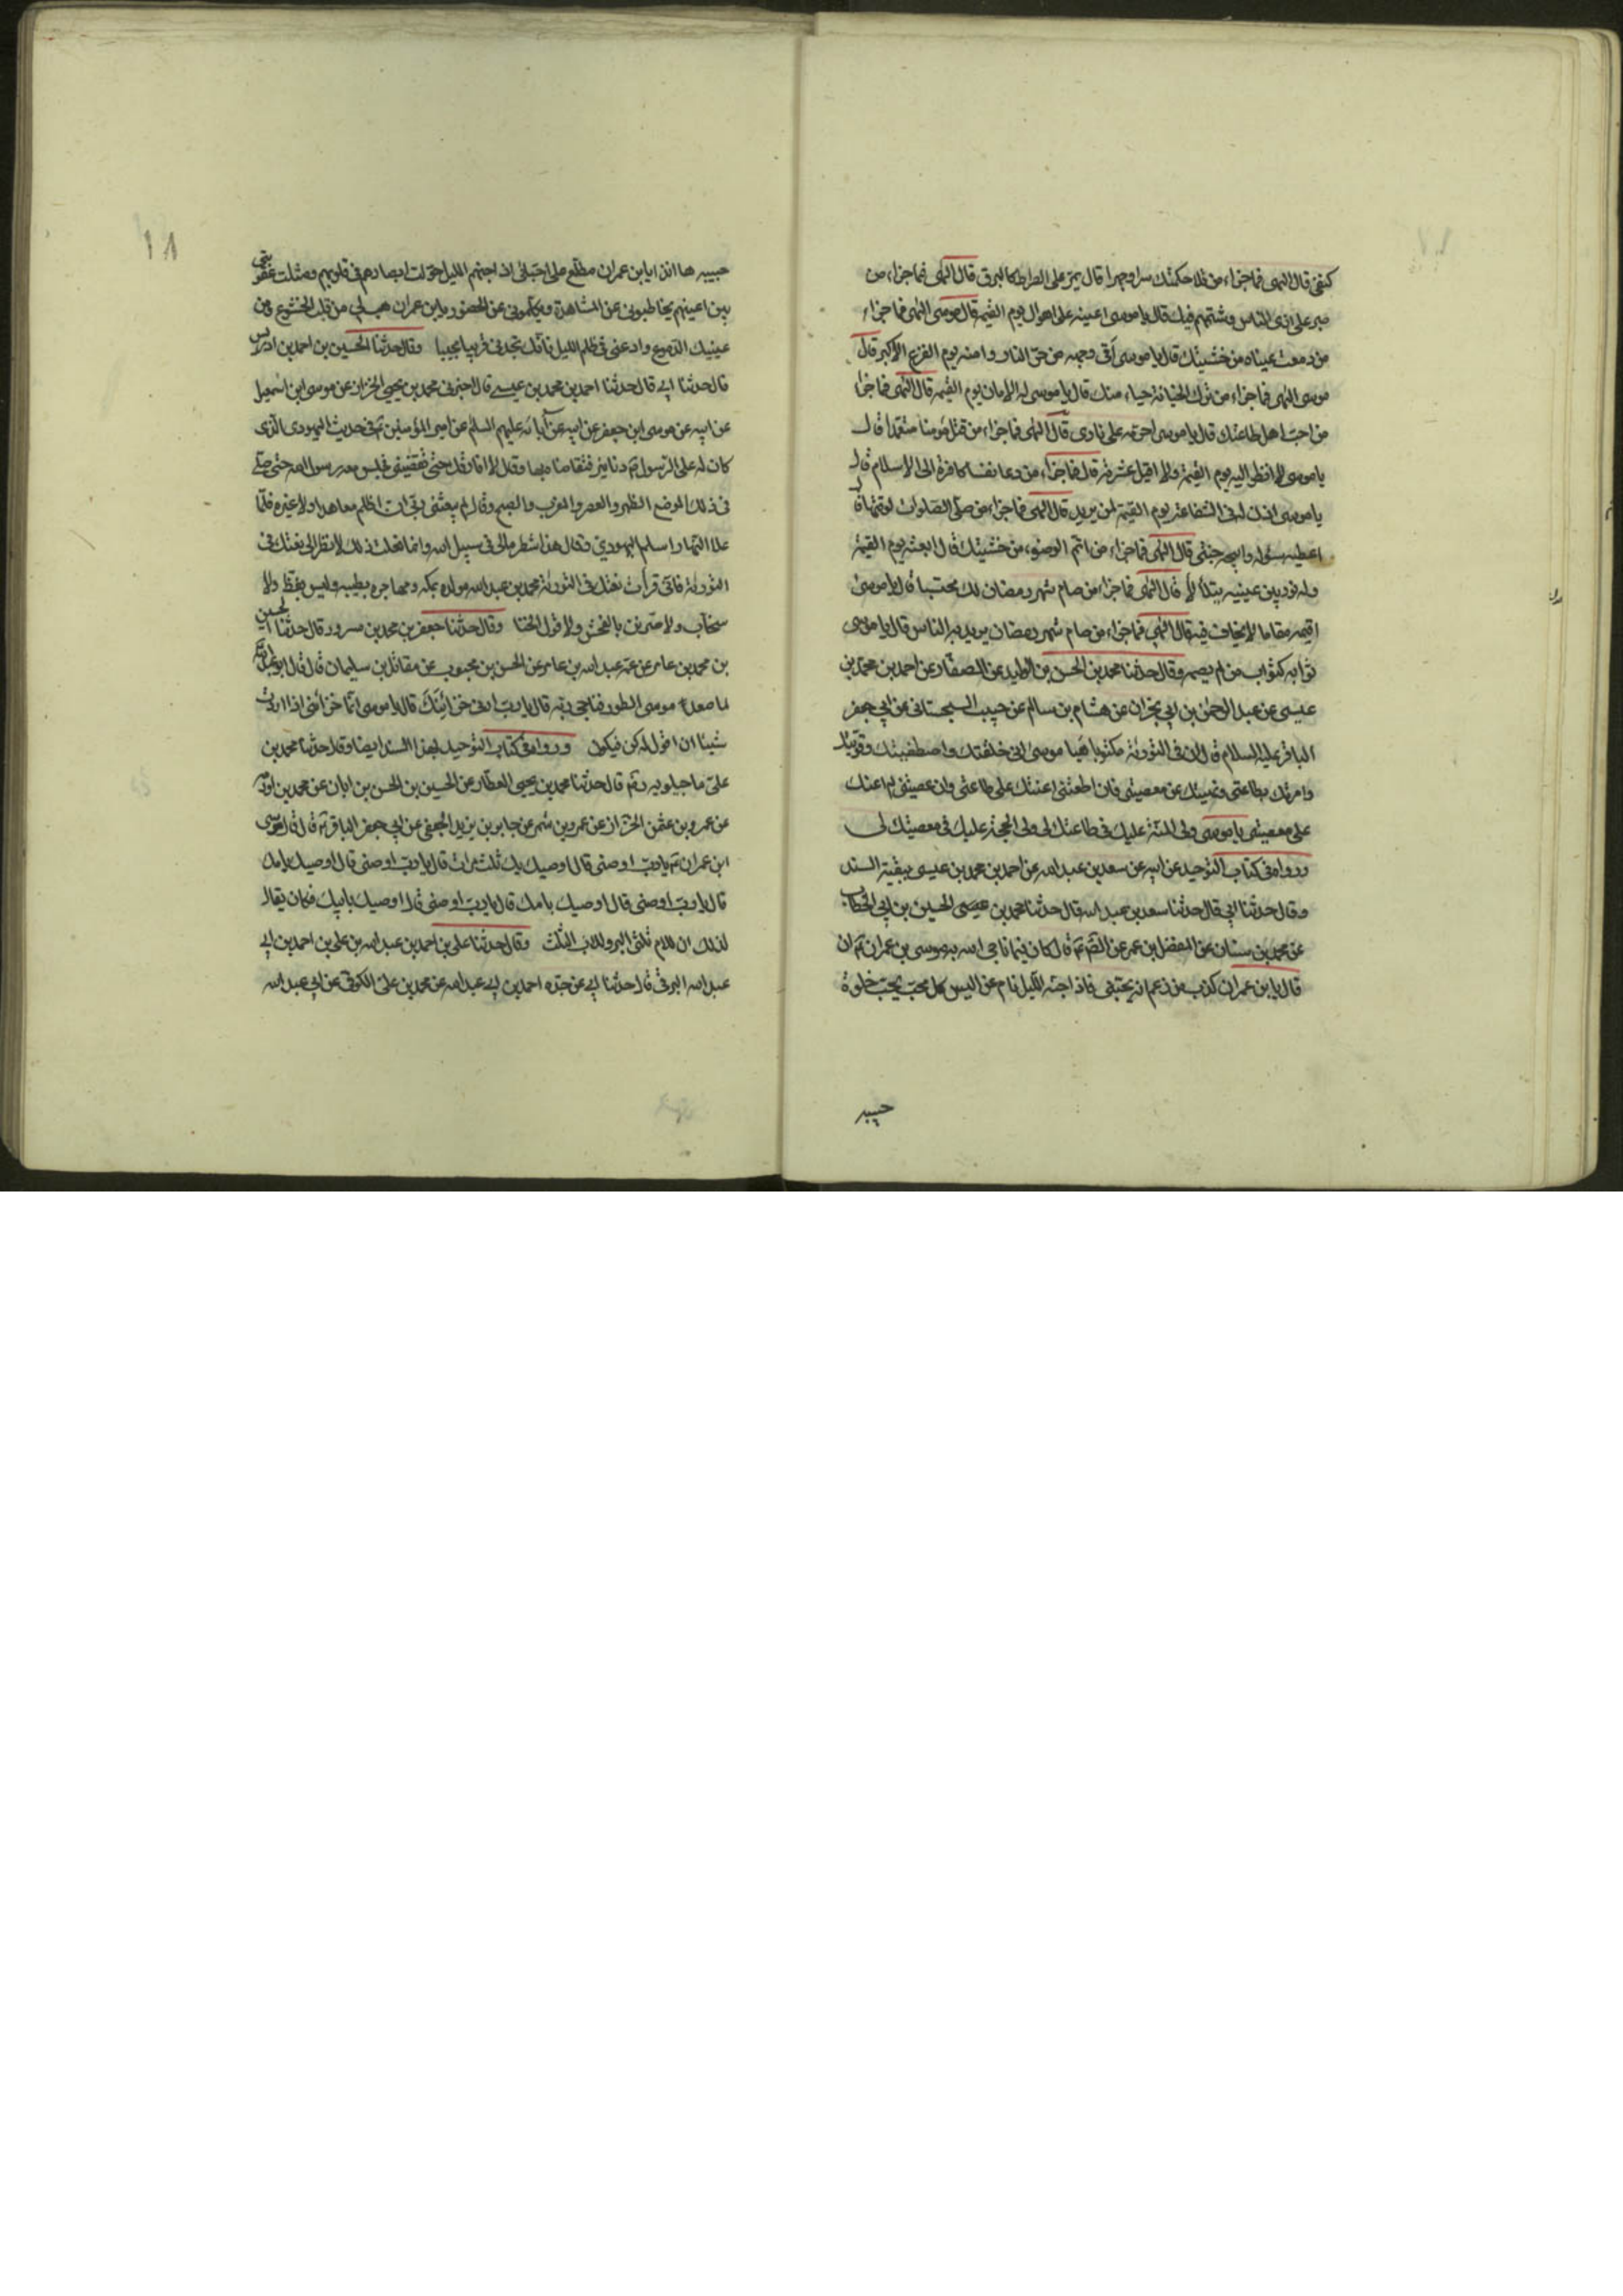 كنفي قال الهي فما جزاء من تلا حكمتك سرا وجهرا قال يمر على الصراط كالبرق قال الهي فما جزاء من
صبر على اذى الناس وشتمهم فيك قال يا موسى اعينه على اهوال يوم القيمة قال موسى الهي فما جزاء
من دمعت عيناه من خشيتك قال يا موسى اقى وجهه من حر النار وآمنه يوم الفزع الاكبر قال
موسى الهي فما جزاء من ترك الخيانة حياء منك قال يا موسى له الامان يوم القيمة قال الهي فما جزاء
من احب اهل طاعتك قال يا موسى احرمه على نارى قال الهي فما جزاء من قتل مؤمنا متعمدا قال
يا موسى لا انظر اليه يوم القيمة ولا اقيل عثرته قال فما جزاء من دعا نفسا كافرة الى الاسلام قال
يا موسى اذن له في الشفاعة يوم القيمة لمن يريد قال الهي فما جزاء من صلى الصلوات لوقتها قال
اعطيه سؤله وابيحه جنتي قال الهي فما جزاء من اتم الوضوء من خشيتك قال ابعثه يوم القيمة
وله نور بين عينيه يتلألأ قال الهي فما جزاء من صام شهر رمضان لك محتسبا قال يا موسى
اقيمه مقاما لا يخاف فيه قال الهي فما جزاء من صام شهر رمضان يريد به الناس قال يا موسى
ثوابه كثواب من لم يصمه وقال حدثنا محمد بن الحسن بن الوليد عن الصفار عن احمد بن محمد بن
عيسى عن عبد الرحمن بن ابي نجران عن هشام بن سالم عن حبيب السجستاني عن ابي جعفر
الباقر عليه السلام قال ان في التورية مكتوبا فيها يا موسى اني خلقتك واصطفيتك وقويتك
وامرتك بطاعتي ونهيتك عن معصيتي فان اطعتني اعنتك على طاعتي وان عصيتني لم اعنك
على معصيتي يا موسى ولي المنة عليك في طاعتك لي ولي الحجة عليك في معصيتك لي
ورواه في كتاب التوحيد عن ابيه عن سعد بن عبد الله عن احمد بن محمد بن عيسى ببقية السند
وقال حدثنا ابي قال حدثنا سعد بن عبد الله قال حدثنا محمد بن عيسى الحسين بن ابي الخطاب
عن محمد بن سنان عن المفضل بن عمر عن الصم ع قال كان فيما ناجى الله به موسى بن عمران ع ان
قال يا بن عمران كذب من زعم انه يحبني فاذا جنه الليل نام عني اليس كل محب يحب خلوة
حبيبه
١٨
حبيبه ها انا ذا يا بن عمران مطلع على احبائي اذا جنهم الليل حولت ابصارهم في قلوبهم ومثلت عقوبتي
بين اعينهم يخاطبوني عن المشاهدة ويكلموني عن الحضور يا بن عمران هب لي من قلبك الخشوع ومن
عينيك الدموع وادعني في ظلم الليل فانك تجدني قريبا مجيبا وقال حدثنا الحسين بن احمد بن ادريس
قال حدثنا ابي قال حدثنا احمد بن محمد بن عيسى قال اخبرني محمد بن يحيى الخزاز عن موسى ابن اسمعيل
عن ابيه عن موسى ابن جعفر عن ابيه عن آبائه عليهم السلم عن امير المؤمنين ع في حديث اليهودى الذى
كان له على الرسول ص دنانير فتقاضاه بها وقال لا افارقك حتى تقضيني فجلس معه رسول الله حتى صلى
في ذلك الموضع الظهر والعصر والمغرب والصبح وقال لم يبعثني ربي ان اظلم معاهدا ولا غيره فلما
علا النهار اسلم اليهودي وقال هذا شطر مالي في سبيل الله وانما فعلت ذلك لانظر الى نعتك في
التورية فاني قرأت نعتك في التورية محمد بن عبد الله مولده بمكة ومهاجره بطيبة وليس بفظ ولا
سخاب ولا مترين بالفحش ولا قول الخنا وقال حدثنا جعفر بن محمد بن مسرور قال حدثنا الحسين
بن محمد بن عامر عن عمه عبد الله بن عامر عن الحسن بن محبوب عن مقاتل بن سليمان قال قال ابو عبد الله ع
لما صعد موسى الطور فناجى ربه قال يا رب ارني خزائنك قال يا موسى انما خزائني اذا اردت
شيئا ان اقول له كن فيكون ورواه في كتاب التوحيد بهذا السند ايضا وقال حدثنا محمد بن
علي ماجيلويه رض قال حدثنا محمد بن يحيى العطار عن الحسين بن الحسن بن ابان عن محمد بن اورمة
عن عمرو بن عثمن الخزاز عن عمرو بن شمر عن جابر بن يزيد الجعفي عن ابي جعفر الباقر ع قال قال موسى
ابن عمران ع يا رب اوصني قال اوصيك بك ثلث مرات قال يا رب اوصني قال اوصيك بامك
قال يا رب اوصني قال اوصيك بامك قال يا رب اوصني قال اوصيك بابيك فكان يقال
لذلك ان للام ثلثى البر وللاب الثلث وقال حدثنا علي بن احمد بن عبد الله بن علي بن احمد بن ابي
عبد الله البرقي قال حدثنا ابي عن جده احمد بن ابي عبد الله عن محمد بن علي الكوفي عن ابي عبد الله